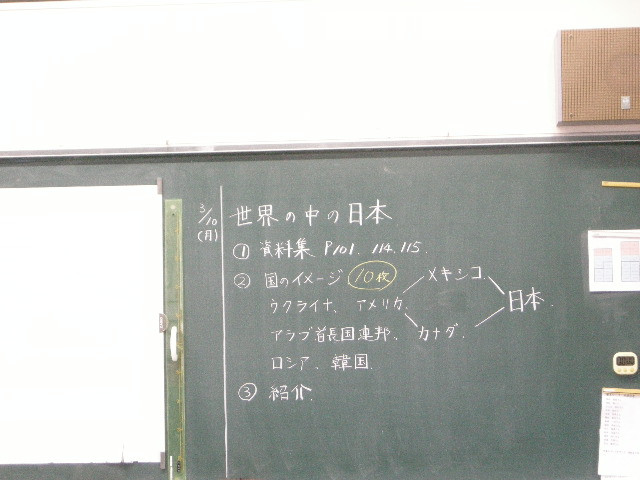 3/10
(月)
世界の中の日本
① 資料集 P101. 114. 115.
② 国のイメージ 10枚
メキシコ
ウクライナ、アメリカ
日本.
アラブ首長国連邦、カナダ.
ロシア、韓国.
③ 紹介.